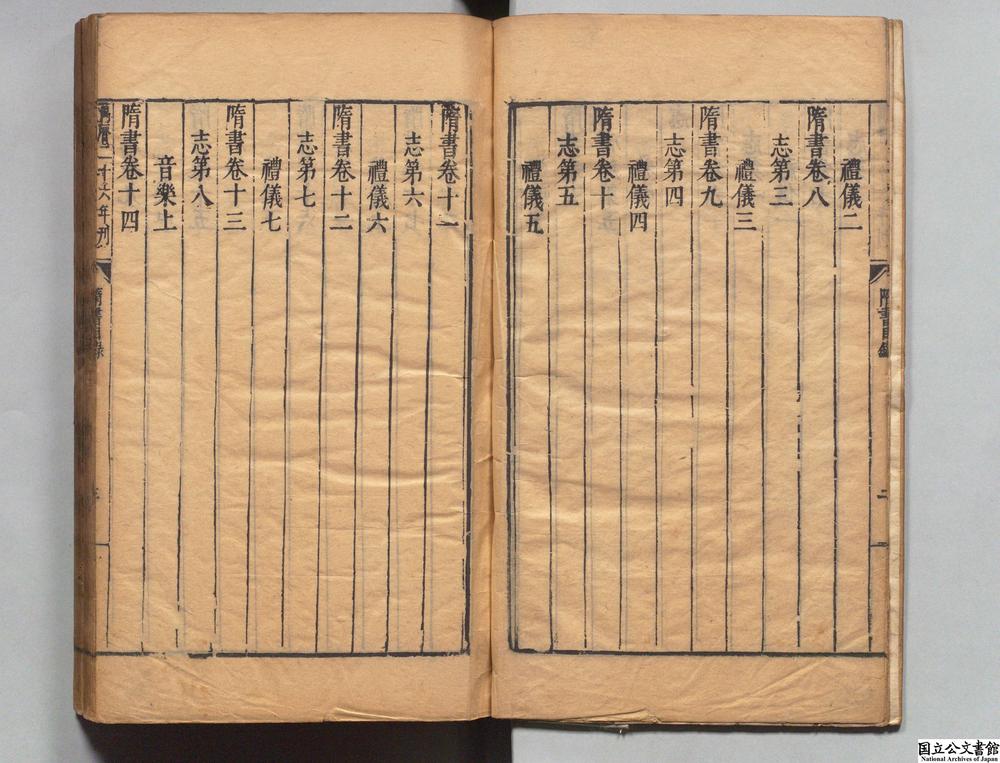 隋書目錄 二
禮儀二
隋書卷八
志第三
禮儀三
隋書卷九
志第四
禮儀四
隋書卷十
志第五
禮儀五
隋書卷十一
志第六
禮儀六
隋書卷十二
志第七
禮儀七
隋書卷十三
志第八
音樂上
隋書卷十四
萬曆二十六年刊
隋書目錄 三
国立公文書館
National Archives of Japan